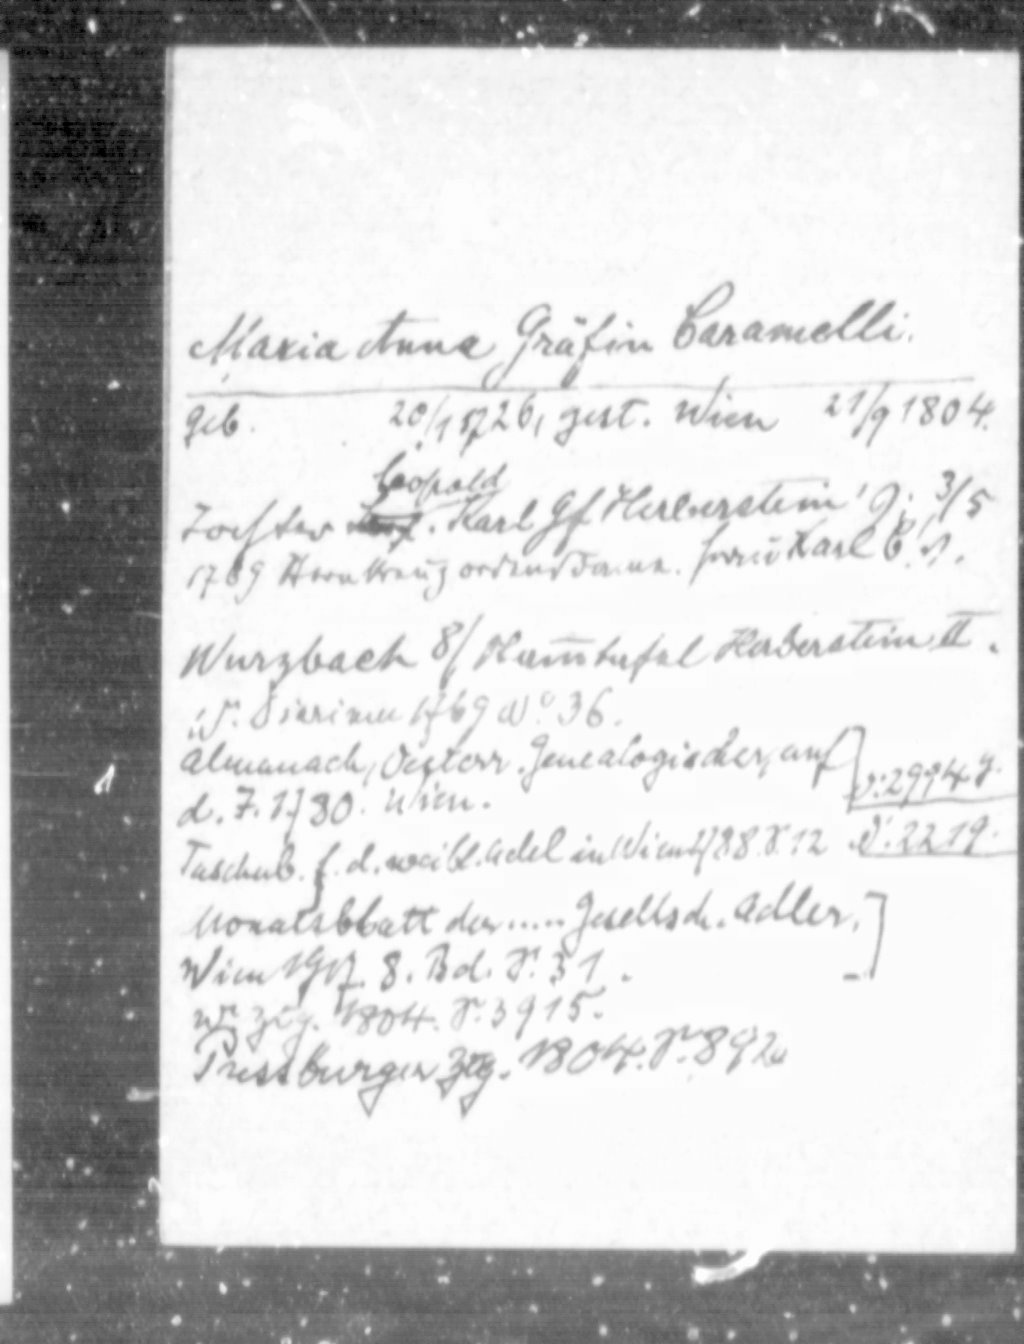 Maria Anna Gräfin Caramelli.
geb. 20/1 1726, gest. Wien 21/9 1804.
Leopold
Tochter . Karl Gf Herberstein 3/5
1769 Sternkreuzordensdame. Karl C.
Wurzbach 8/ Stammtafel Herberstein II.
W. Diarium 1769 No. 36.
Almanach, Oesterr. Genealogischer, auf
d. J. 1780. Wien. S. 2994 g.
Taschnb. f. d. weibl. Adel in Wien 1788. S. 12 S. 2219.
Monatsblatt der ..... Gesellsch. Adler,
Wien 1917. 8. Bd. S. 31.
Wr. Ztg. 1804. S. 3915.
Pressburger Ztg. 1804. S. 892.